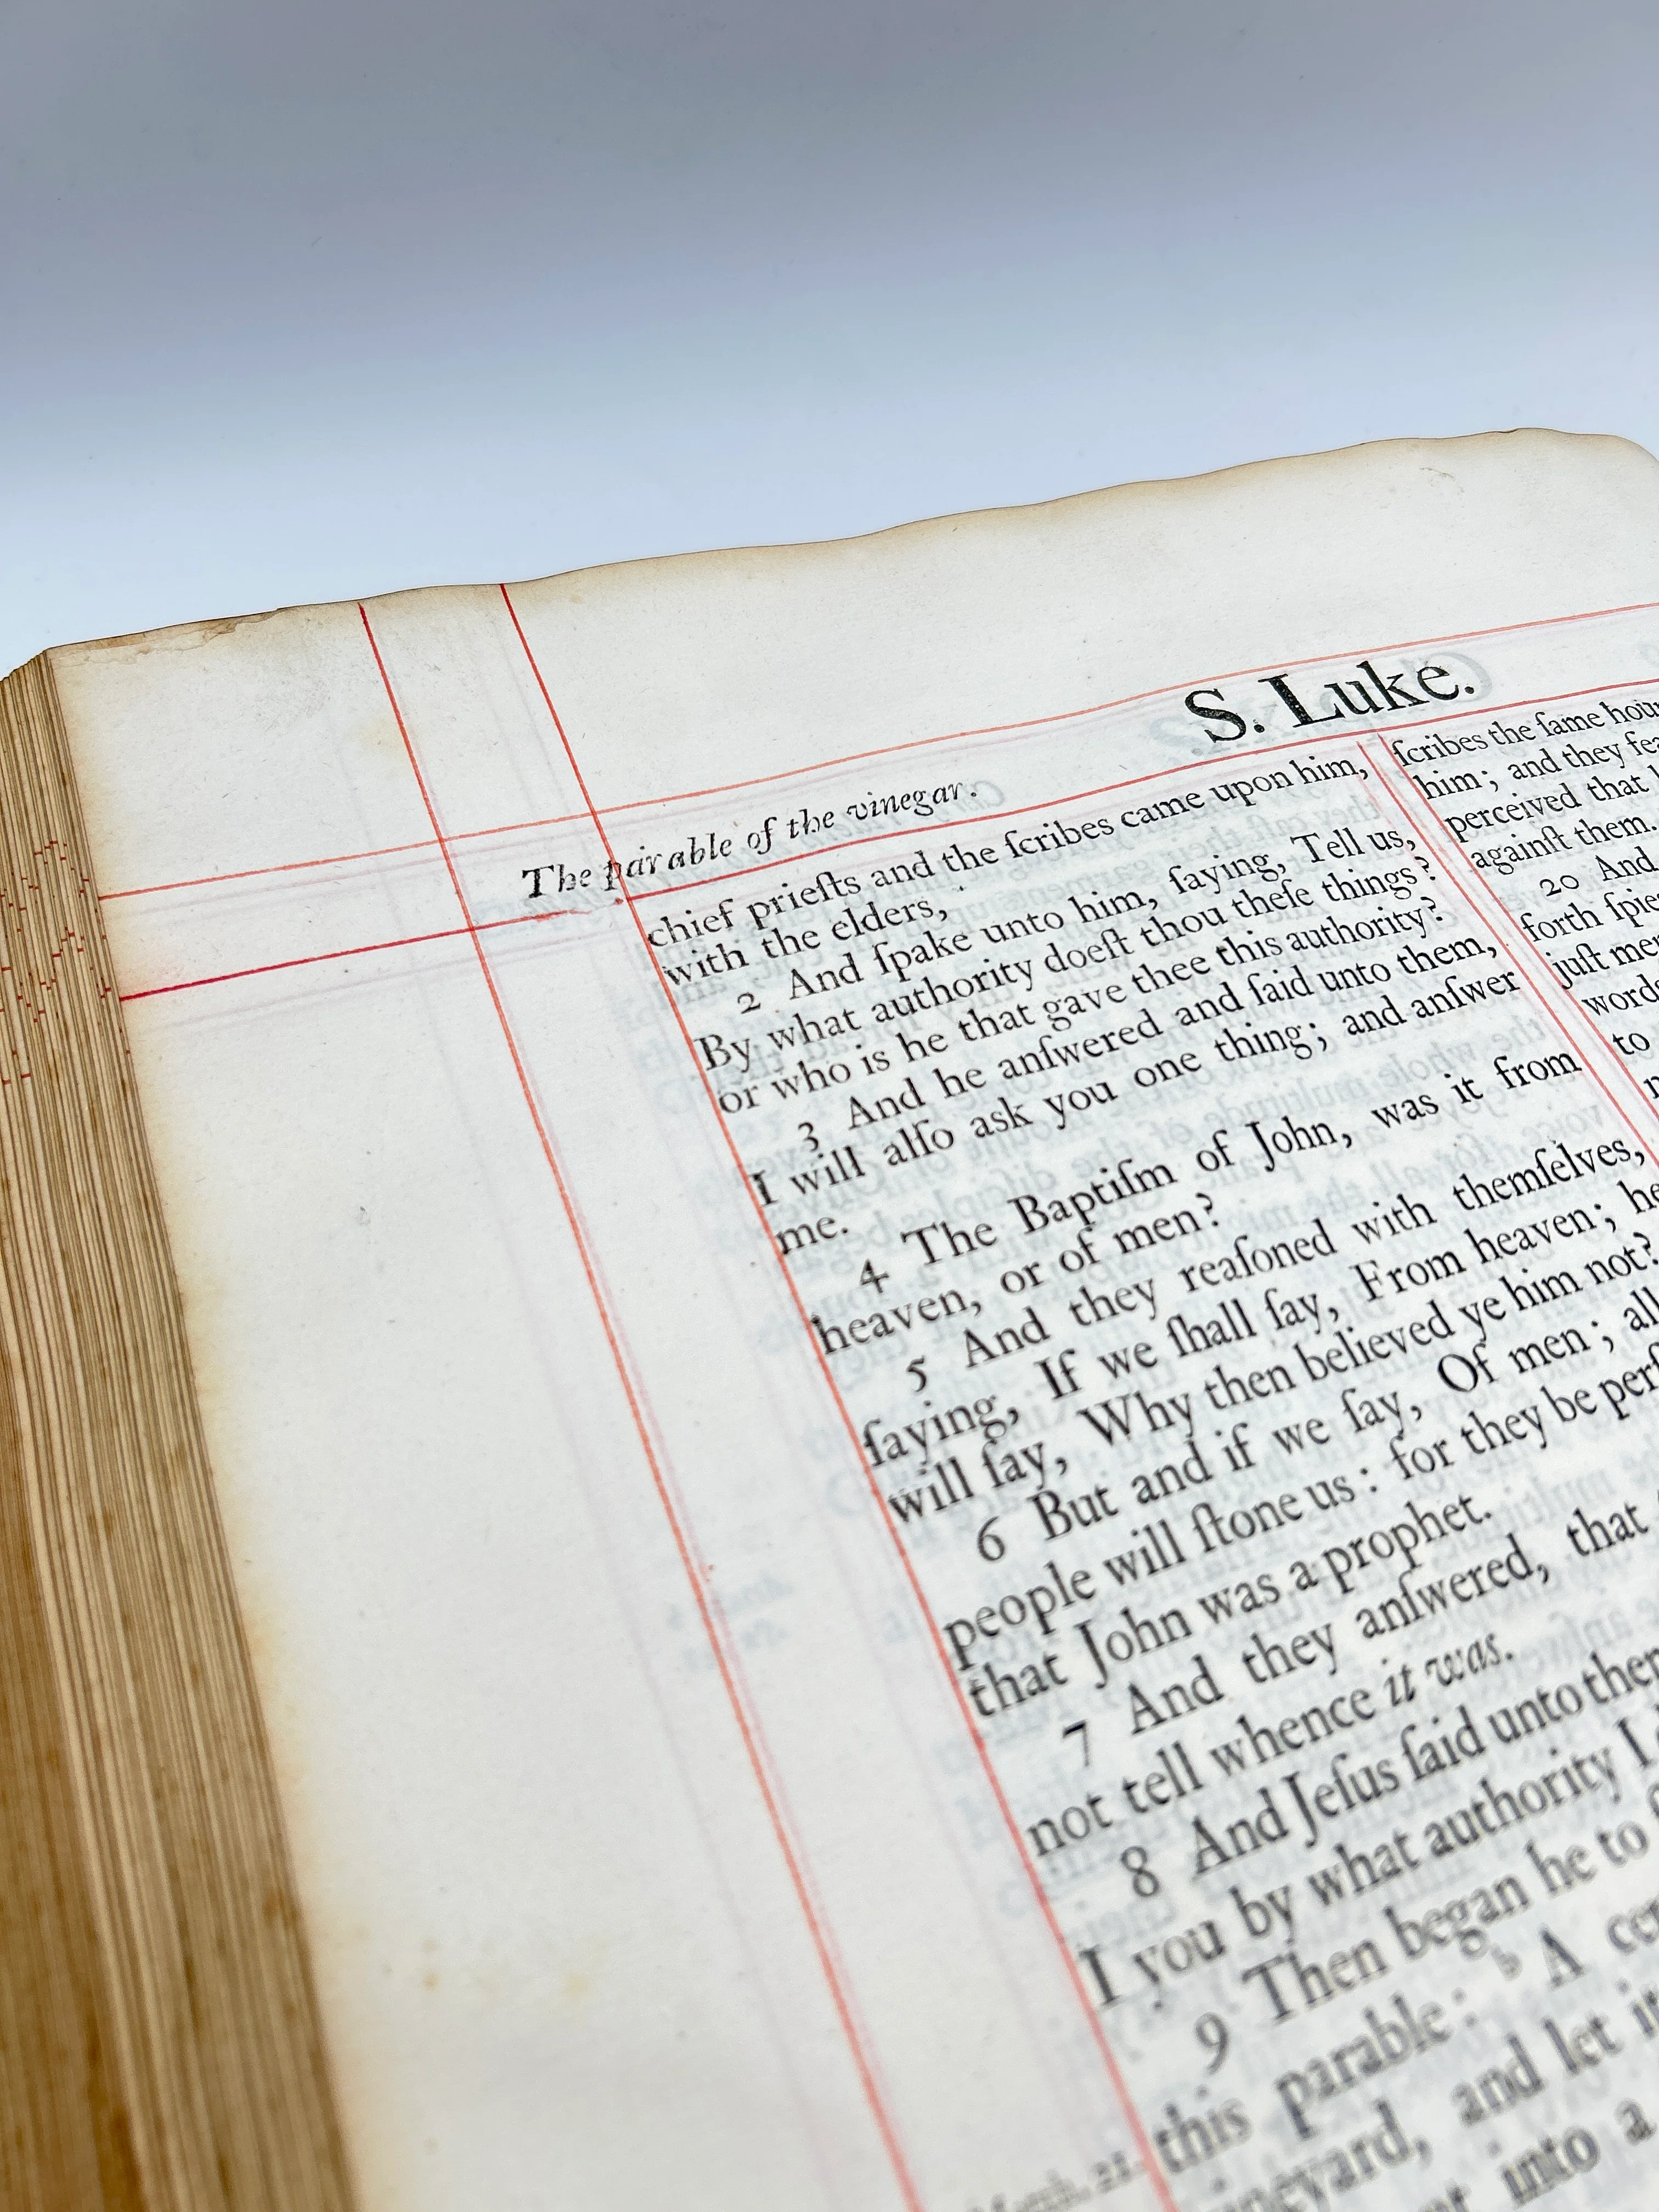 S. Luke.
The parable of the vinegar.
chief prieſts and the ſcribes came upon him,
with the elders,
2 And ſpake unto him, ſaying, Tell us,
By what authority doeſt thou theſe things?
or who is he that gave thee this authority?
3 And he anſwered and ſaid unto them,
I will alſo ask you one thing; and anſwer
me.
4 The Baptiſm of John, was it from
heaven, or of men?
5 And they reaſoned with themſelves,
ſaying, If we ſhall ſay, From heaven; he
will ſay, Why then believed ye him not?
6 But and if we ſay, Of men; all
people will ſtone us: for they be perſ
that John was a prophet.
7 And they anſwered, that
not tell whence it was.
8 And Jeſus ſaid unto them
I you by what authority I
9 Then began he to
this parable: b A cer
vineyard, and let it
into a
Matth. 21.
ſcribes the ſame hour
him; and they fea
perceived that
againſt them.
20 And
forth ſpie
juſt me
words
to